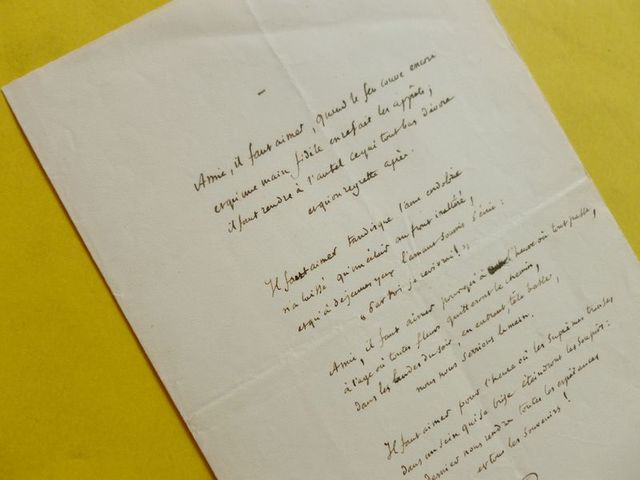 Amie, il faut aimer, quand le feu couve encore
et qu'une main fidèle en refait les apprêts ;
il faut rendre à l'autel ce qui tout bas dévore
et qu'on regrette après.
Il faut aimer tandis que l'âme
n'a laissé qu'un éclair au front inaltéré,
et qu'à de jeunes yeux l'amant soumis s'écrie :
" Par toi, je revivrai ! "
Amie, il faut aimer jusqu'à l'heure où tout passe,
à l'âge où toutes fleurs quitteront le chemin,
dans les landes du soir, en entrant, tête basse,
nous nous serrions la main.
Il faut aimer pour l'heure où les suprêmes
dans un sein qui se brise éteindront les soupirs :
dernier nous rendra toutes les espérances
et tous les souvenirs !